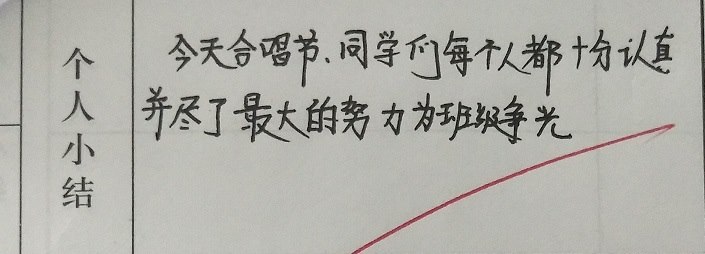 个人小结
今天合唱节、同学们每个人都十分认真
并尽了最大的努力为班级争光